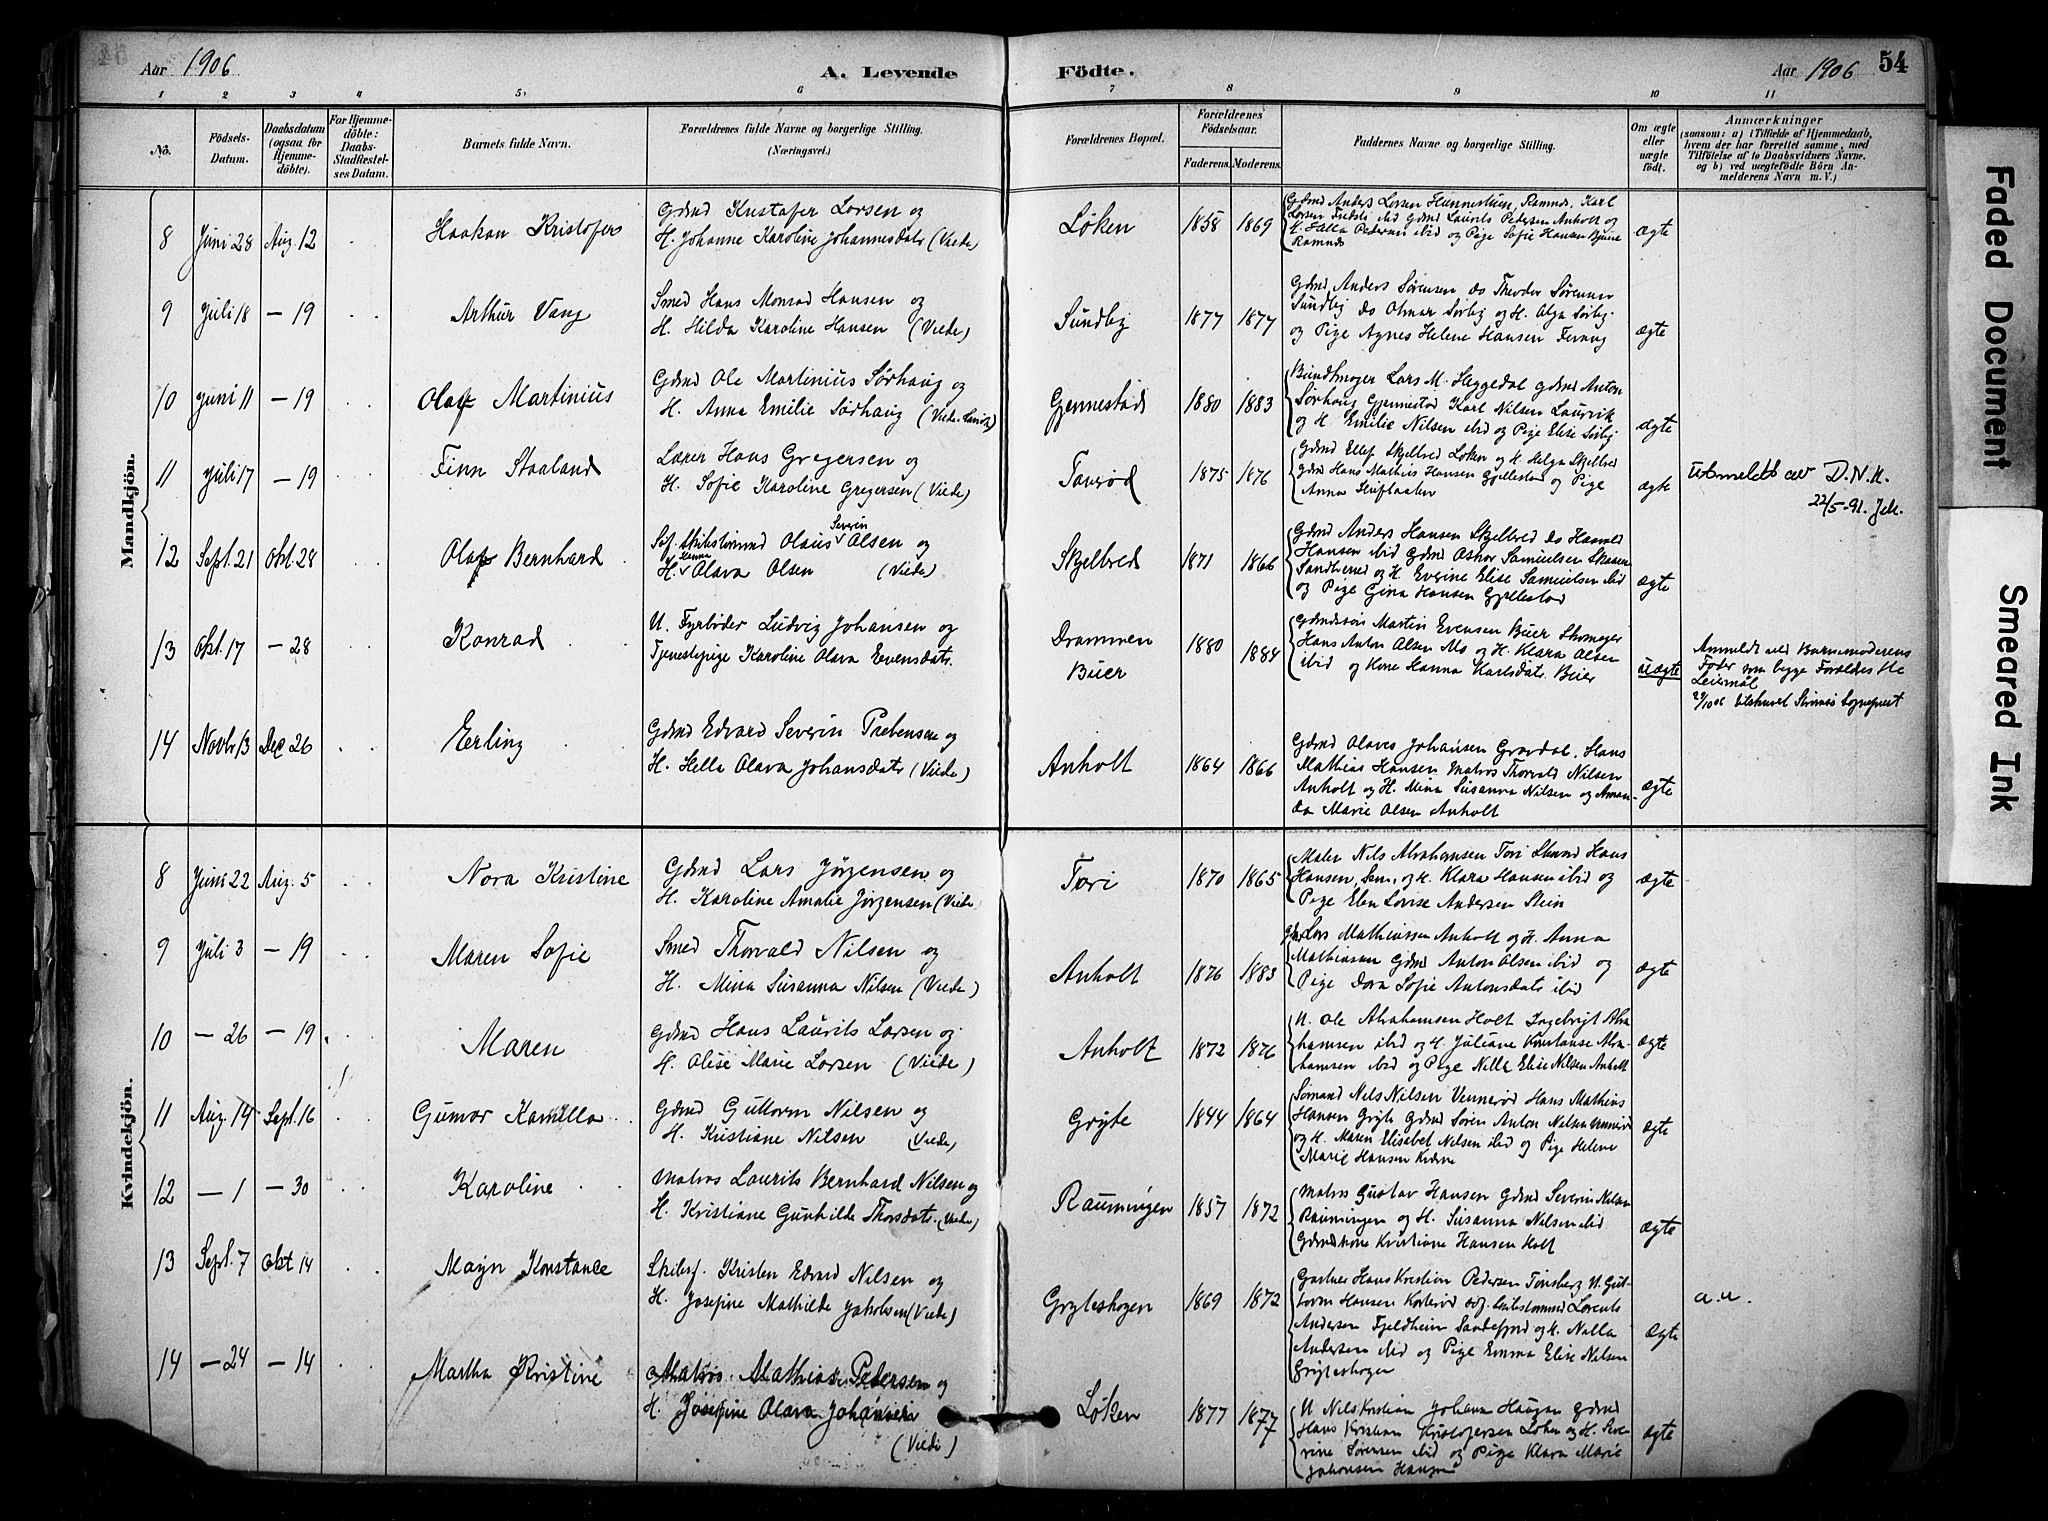 Aar 1906 A. Levende Födte. Aar 1906 54
1 2 3 4 5 6 7 8 9 10 11
Nö.
Födsels-Datum.
Daabsdatum (ogsaa for Hjemme-döbte).
For Hjemme-döbte: Daabs-Stadfæstel-ses Datum.
Barnets fulde Navn.
Forældrenes fulde Navne og borgerlige Stilling.
(Næringsvei.)
Forældrenes Bopæl.
Forældrenes Födselsaar.
Faderens. Moderens.
Faddernes Navne og borgerlige Stilling.
Om ægte eller uægte födt.
Anmærkninger
(saasom: a) i Tilfælde af Hjemmedaab,
hvem der har forrettet samme, med
Tilföielse af to Daabsvidners Navne.
og b) ved uægtefödte Börn An-
melderens Navn m. V.)
Mandkjön.
8 Juni 28 Aug. 12 Haakon Kristofer
Gdmd Kristofer Larsen og
H. Johanne Karoline Johannesdatr (Viede)
Løken 1858 1869
Gdmd Anders Larsen Ramnæs, Karl
Larsen ibid Gdmd Laurits Pedersen Anholt og
Pedersen ibid og Pige Sofie Hansen
Ramnæs
ægte
9 Juli 18 — 19 Arthur Vang
Smed Hans Monrad Hansen og
H. Hilda Karoline Hansen (Viede)
Sundby 1877 1877
Gdmd Anders Sørensen do Theodor Sørensen
Sundby do Olmar Sørby og H. Olga Sørby
og Pige Agnes Helene Hansen
ægte
10 Juni 11 — 19 Olaf Martinius
Gdmd Ole Martinius Sørhaug og
H. Anna Emilie Sørhaug (Viede
Gjennestad 1880 1883
Lars M. Heggedal gdmd Anton
Sørhaug Gjennestad Karl Nilsen Laurvik
og H. Emilie Nilsen ibid og Pige Elise Sørby
ægte
11 Juli 17 — 19 Finn Staaland
Lærer Hans Gregersen og
H. Sofie Karoline Gregersen (Viede)
Taurød 1875 1876
Gdmd Ellef Skjelbred Løken og H. Helga Skjelbred
gdmd Hans Mathias Hansen Gjellestad og Pige
Anna
ægte
Utmeldt av D.N.K.
22/5-91.
12 Sept. 21 Okt. 28 Olaf Bernhard
Olaus Severin Olsen og
H. Hanna Olava Olsen (Viede)
Skjelbred 1871 1866
Gdmd Anders Hansen Skjelbred do Harald
Hansen ibid Gdmd Oskar Samuelsen
Sandherred og H. Everine Elise Samuelsen ibid
og Pige Gina Hansen Gjellestad
ægte
13 Okt. 17 — 28 Konrad
U. Fyrbøder Ludvig Johansen og
Tjenestepige Karoline Olava Evensdatr.
Drammen
Buer
1880 1884
Gdmdssøn Martin Evensen Buer
Hans Anton Olsen Mo og H. Klara Olsen
ibid og Kone Hanna Karlsdatr. Buer
uægte
Anmeldt ved Barnemoderens
Fader som begge Forældres 1ste
Leiermål
29/10 06
14 Novbr 13 Dec 26 Erling
Gdmd Edvard Severin Prebensen og
H. Hella Olava Johansdatr (Viede)
Anholt 1864 1866
Gdmd Olaves Johansen Gravdal. Hans
Mathias Hansen Matros Thorvald Nilsen
Anholt og H. Mina Susanna Nilsen og Aman-
da Marie Olsen Anholt
ægte
Kvindekjön.
8 Juni 22 Aug. 5 Nora Kristine
Gdmd Lars Jørgensen og
H. Karoline Amalie Jørgensen (Viede)
Tori 1870 1865
Maler Nils Abrahamsen Tori Hans
Hansen, Sem, og H. Klara Hansen ibid og
Pige Elen Lovise Andersen Stein
ægte
9 Juli 3 — 19 Maren Sofie
Smed Thorvald Nilsen og
H. Mina Susanna Nilsen (Viede)
Anholt 1876 1883
Gdmd Lars Mathiassen Anholt og H. Anna
Mathiasen Gdmd Anton Olsen ibid og
Pige Dora Sofie Antonsdatr ibid
ægte
10 — 26 — 19 Maren
Gdmd Hans Laurits Larsen og
H. Olise Marie Larsen (Viede)
Anholt 1872 1876
U. Ole Abrahamsen Holt Ingebrigt Abra-
hamsen ibid og H. Juliane Konstanse Abra-
hamsen ibid og Pige Nilla Elise Nilsen Anholt
ægte
11 Aug. 14 Sept. 16 Gunvor Kamilla
Gdmd Guttorm Nilsen og
H. Kristiane Nilsen (Viede)
Gryte 1844 1864
Sømand Nils Nilsen Vennerød Hans Mathias
Hansen Gryte Gdmd Søren Anton Nilsen Vennerød
og H. Maren Elisabet Nilsen ibid og Pige Helene
Marie Hansen
ægte
12 — 1 — 30 Karoline
Matros Laurits Bernhard Nilsen og
H. Kristiane Gunhilde Thorsdatr. (Viede)
Rauningen 1857 1872
Matros Gustav Hansen Gdmd Severin Nilsen
Rauningen og H. Susanna Nilsen ibid
Gdmdkone Kristiane Hansen Holt
ægte
13 Sept. 7 Okt 14 Konstance
Skibsf. Kristen Edvard Nilsen og
H. Josefine Mathilde Jakobsen (Viede)
Gryteskogen 1869 1872
Gartner Hans Kristian Pedersen Tønsberg U. Gut-
torm Hansen Lorents
Andersen Fjeldheim Sandefjord og H. Nalla
Andersen ibid og Pige Emma Elise Nilsen
Gryteskogen
ægte
a.u.
14 — 24 — 14 Martha Kristine
Matros Mathias Pedersen og
H. Josefine Olava Johansen
(Viede)
Løken 1877 1877
U Nils Kristian Johansen Haugan gdmd
Hans Kristian Kristofersen Løken og H. Seve-
rine Sørensen ibid og Pige Klara Marie
Johansen Haugan
ægte
Faded Document
Smeared Ink